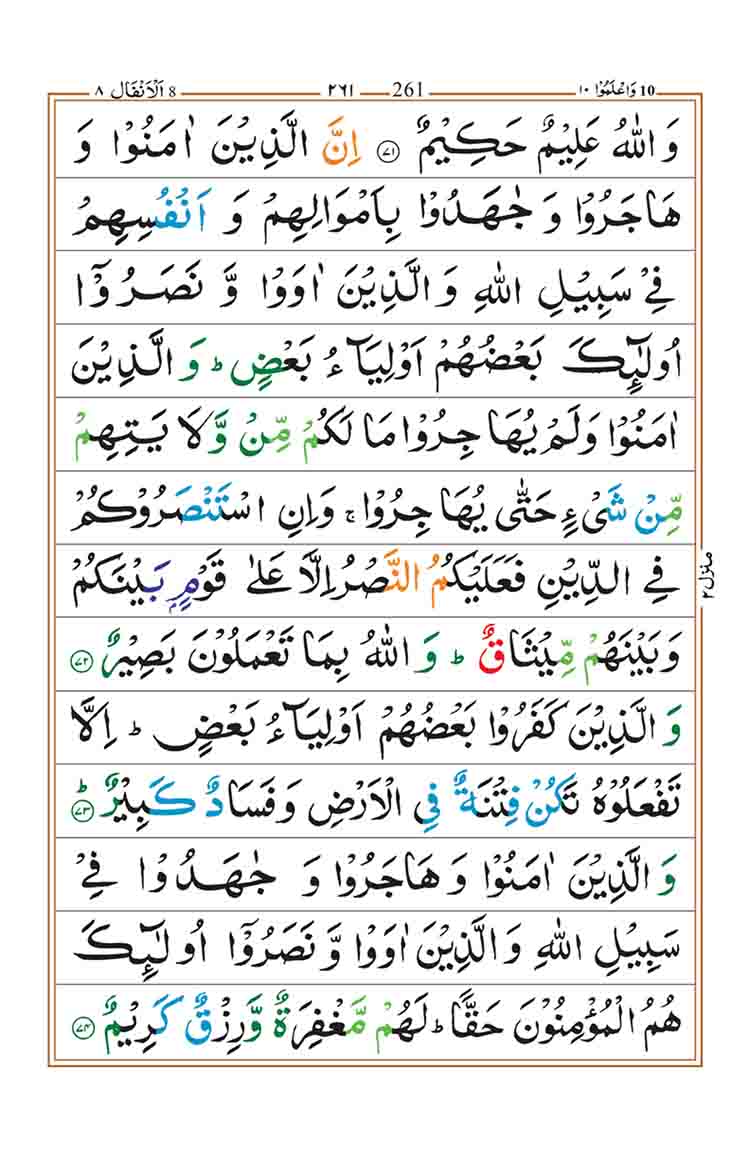 وَاعْلَمُوْا ١٠ 10 261 ٢٦١ 8 اَلْاَنْفَال ٨
وَ اللّٰهُ عَلِيْمٌ حَكِيْمٌ ﴿٧١﴾ اِنَّ الَّذِيْنَ اٰمَنُوْا وَ
هَاجَرُوْا وَ جٰهَدُوْا بِاَمْوَالِهِمْ وَ اَنْفُسِهِمْ
فِيْ سَبِيْلِ اللّٰهِ وَ الَّذِيْنَ اٰوَوْا وَّ نَصَرُوْۤا
اُولٰٓئِكَ بَعْضُهُمْ اَوْلِيَآءُ بَعْضٍ ؕ وَ الَّذِيْنَ
اٰمَنُوْا وَلَمْ يُهَاجِرُوْا مَا لَكُمْ مِّنْ وَّلَا يَتِهِمْ
مِّنْ شَيْءٍ حَتّٰى يُهَاجِرُوْا ۚ وَاِنِ اسْتَنْصَرُوْكُمْ
فِي الدِّيْنِ فَعَلَيْكُمُ النَّصْرُ اِلَّا عَلٰى قَوْمٍۭ بَيْنَكُمْ
وَبَيْنَهُمْ مِّيْثَاقٌ ؕ وَ اللّٰهُ بِمَا تَعْمَلُوْنَ بَصِيْرٌ ﴿٧٢﴾
وَ الَّذِيْنَ كَفَرُوْا بَعْضُهُمْ اَوْلِيَآءُ بَعْضٍ ؕ اِلَّا
تَفْعَلُوْهُ تَكُنْ فِتْنَةٌ فِي الْاَرْضِ وَ فَسَادٌ كَبِيْرٌ ؕ ﴿٧٣﴾
وَ الَّذِيْنَ اٰمَنُوْا وَ هَاجَرُوْا وَ جٰهَدُوْا فِيْ
سَبِيْلِ اللّٰهِ وَ الَّذِيْنَ اٰوَوْا وَّ نَصَرُوْۤا اُولٰٓئِكَ
هُمُ الْمُؤْمِنُوْنَ حَقًّا ؕ لَهُمْ مَّغْفِرَةٌ وَّ رِزْقٌ كَرِيْمٌ ﴿٧٤﴾
منزل ٢